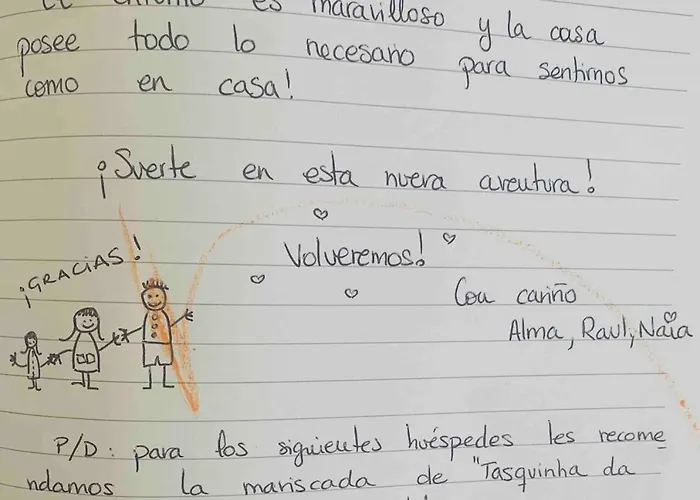 es maravilloso y la casa
posee todo lo necesario para sentirnos
como en casa!
¡Suerte en esta nueva aventura!
¡GRACIAS!
Volveremos!
Con cariño
Alma, Raul, Naia
P/D: para los siguientes huéspedes les recome
ndamos la mariscada de "Tasquinha da